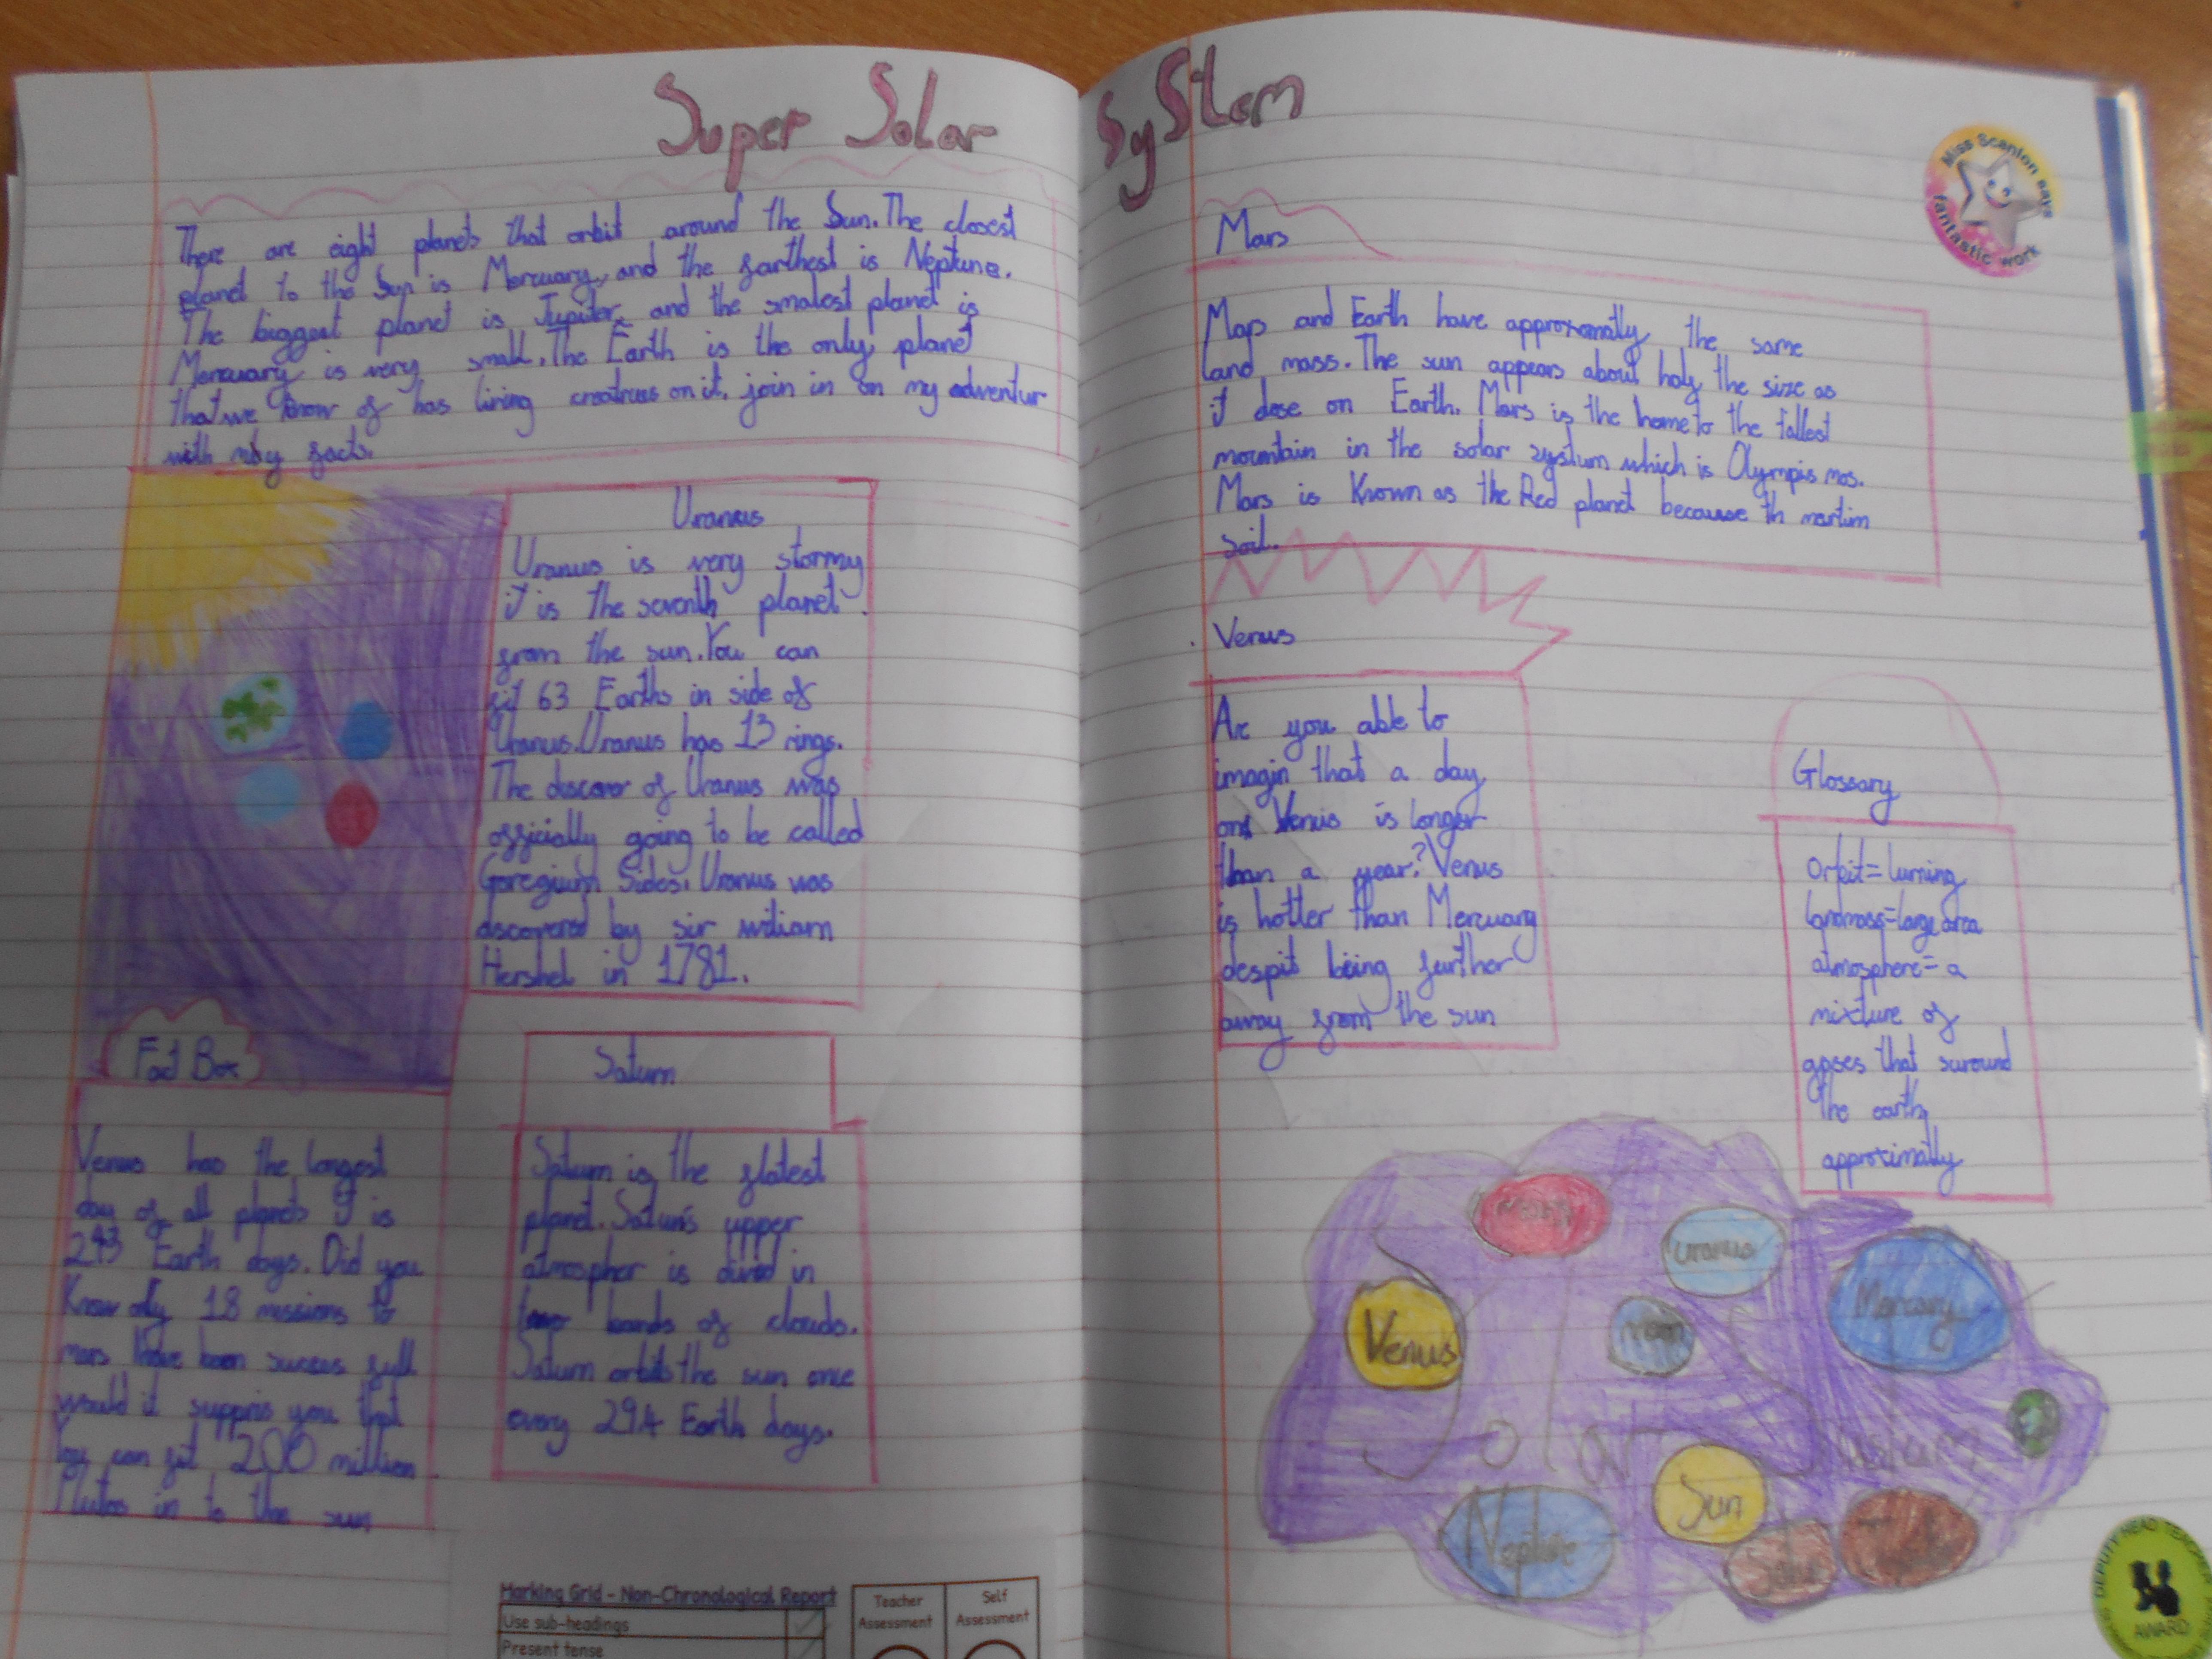 Super Solar SyStem
There are eight planets that orbit around the Sun. The closest
planet to the Sun is Mercuary, and the farthest is Neptune.
The biggest planet is Jupiter, and the smalest planet is
Mercuary is very small. The Earth is the only planet
that we know of has living creatrues on it. join in on my adventur
with my facts.
Uranus
Uranus is very stormy
it is the seventh planet
from the sun. You can
fit 63 Earths in side of
Uranus. Uranus has 13 rings.
The discover of Uranus was
officially going to be called
Goregium Sides. Uranus was
discovered by sir william
Hershel in 1781.
Fact Box
Venus has the longest
day of all planets It is
243 Earth days. Did you
Know only 18 missions to
mars have been succes full
would it suppris you that
You can fit 200 million
Plutos in to the sun
Saturn
Saturn is the flatest
planet. Saturn's upper
atmospher is divied in
bands of clouds.
Saturn orbits the sun once
every 29.4 Earth days.
Marking Grid - Non-Chronological Report
Use sub-headings
Present tense
Teacher Assessment
Self Assessment
Miss Scanlon says
fantastic work
Mars
Mars and Earth have approximatly the same
land mass. The sun appears about half the size as
it dose on Earth. Mars is the home to the tallest
mountain in the solar systum which is Olympis mos.
Mars is Known as the Red planet because th martim
soil.
Venus
Are you able to
imagin that a day
on Venus is longer
than a year? Venus
is hotter than Mercuary
despit being further
away from the sun
Glossary
orbit=turning
landmass=large area
atmosphere=a
mixture of
gases that suround
the earth
approximatly
Uranus
Mercury
Venus
Solar Sistum
Sun
Neptune
DEPUTY HEAD TEACHER
AWARD